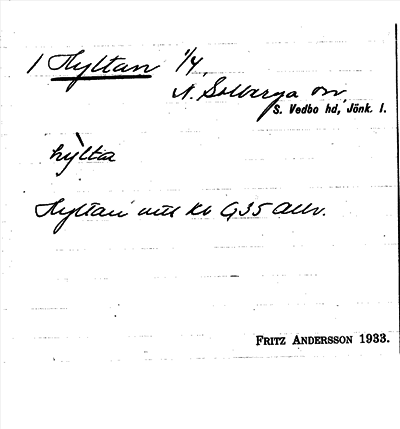 1 Hyltan 1/4
N. Solberga sn
S. Vedbo hd, Jönk. l.
hỳlta
Hyltan Kb G35 Allv.
FRITZ ANDERSSON 1933.